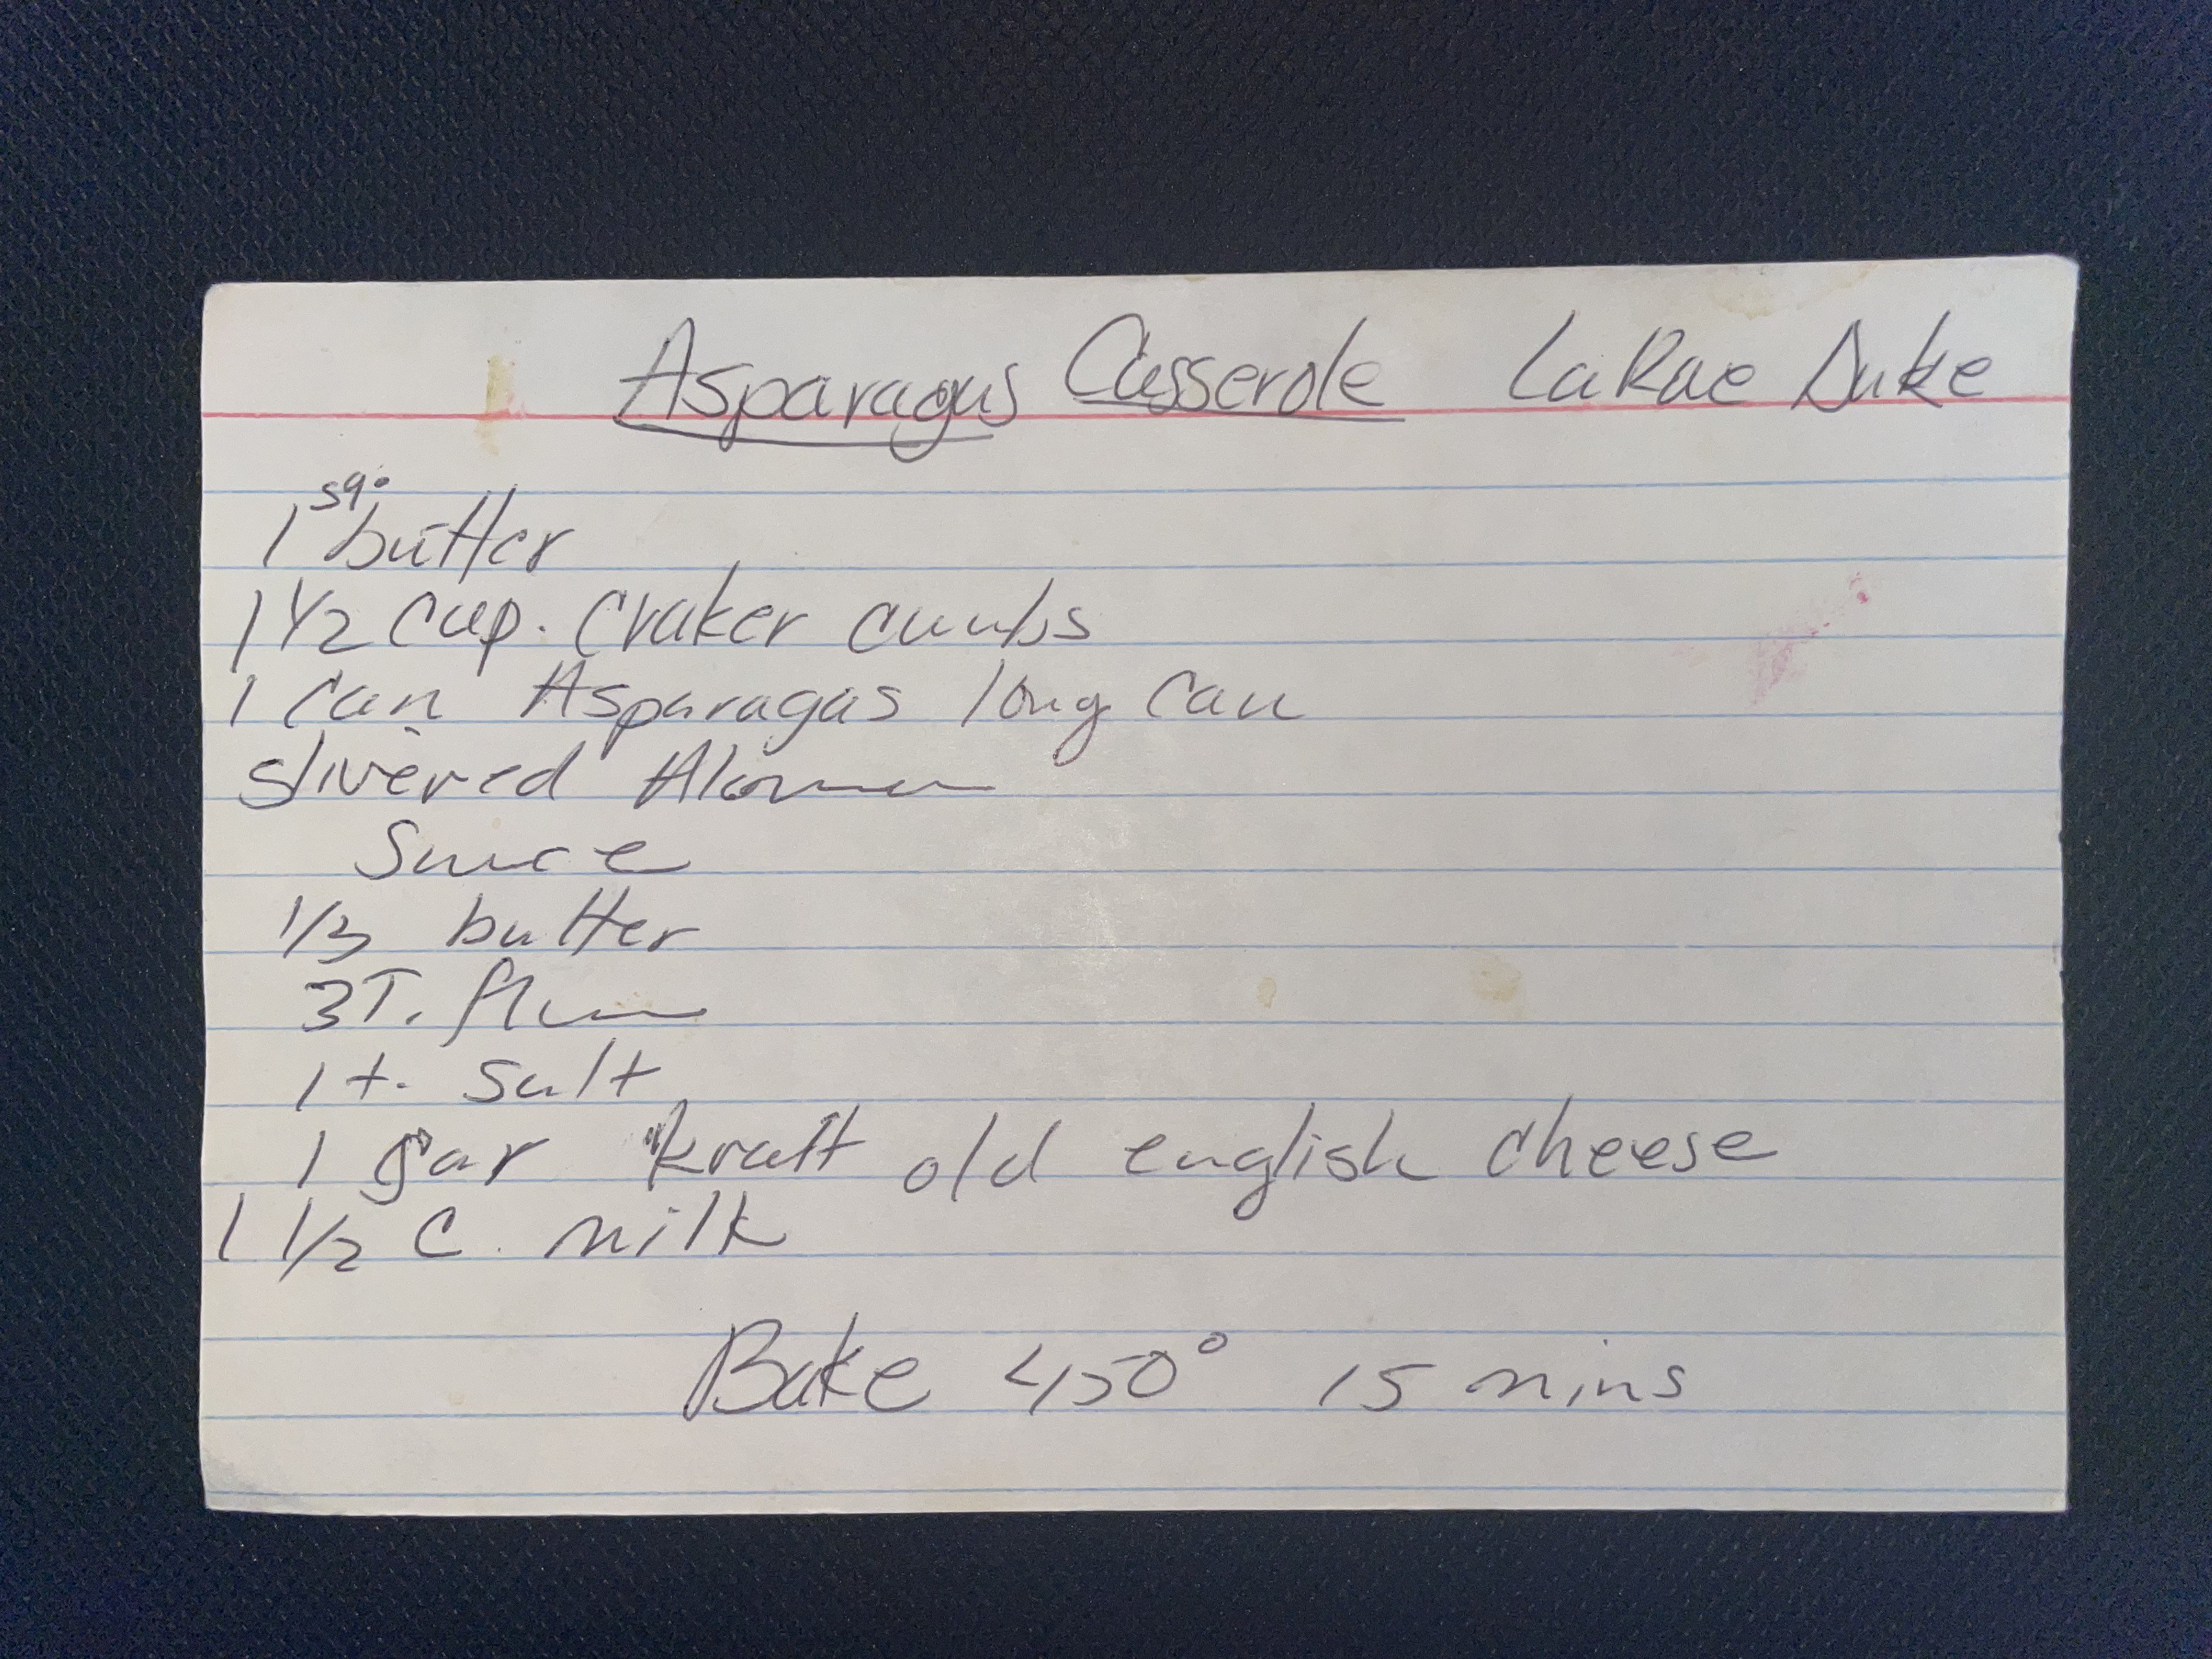 Asparagus Casserole LaRae Duke
sq.
1 butter
1 1/2 cup. craker cumbs
1 can Asparagas long can
slivered
Sauce
1/3 butter
3T. flour
1 t. salt
1 jar kraft old english cheese
1 1/2 C. milk
Bake 450° 15 mins